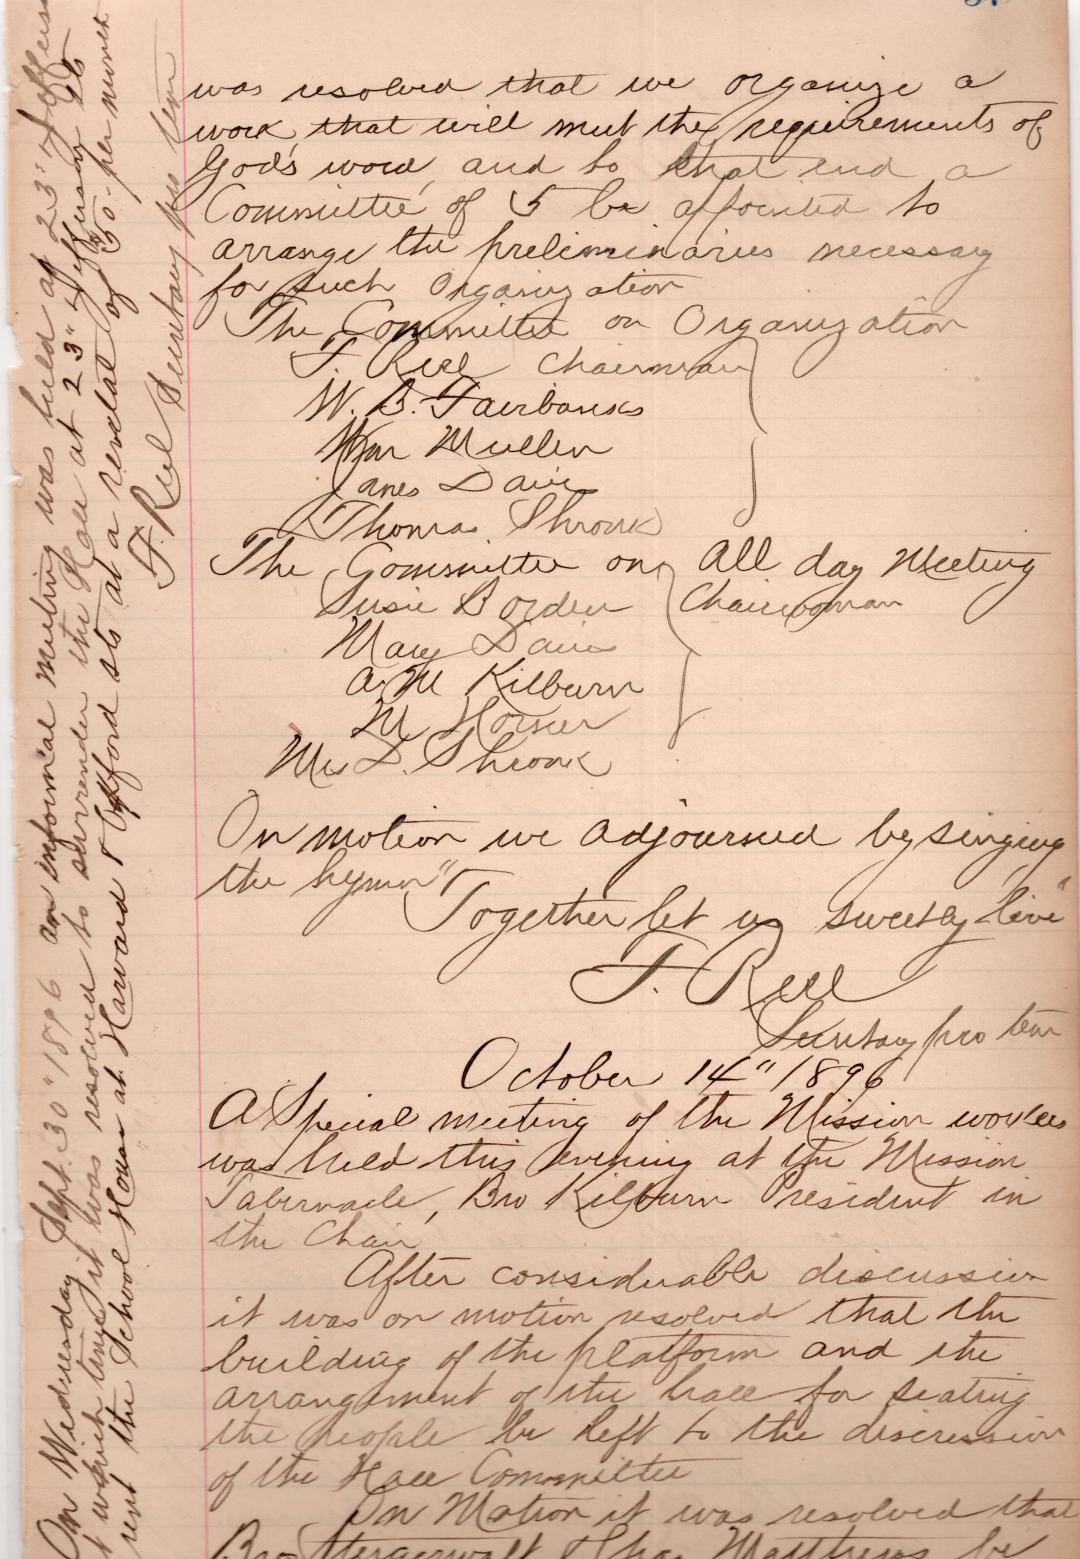 was resolved that we organize a
work, that will meet the requirements of
God's word, and to that end a
Committee of 5 be appointed to
arrange the preliminaries necessary
for such Organization
The Committee on Organization
F. Reel Chairman
W. B. Fairbanks
Wm Mullen
James Davis
Thomas Shronk
The Committee on All day Meeting
Susie Borden Chairwoman
Mary Davis
A M Kilburn
M Horner
Mrs S. Shronk
On motion we adjourned by singing
the hymn "
Together let us sweetly live"
F. Reel
Secretary pro tem
October 14" 1896
A Special meeting of the Mission workers
was held this evening at the Mission
Tabernacle, Bro Kilburn President in
the Chair
After considerable discussion
it was on motion resolved that the
building of the platform and the
arrangement of the hall for seating
the people be left to the discression
of the Hall Committee
On Motion it was resolved that
Bro & Chas Matthews be
On Wednesday Sept. 30" 1896 an informal meeting was held at 23" &
at which time it was resolved to surrender the Hall at 23" & Jefferson sts
rent the School House at Harvard & Offord sts at a renetal of 50- per month
F. Reel Secretary pro tem